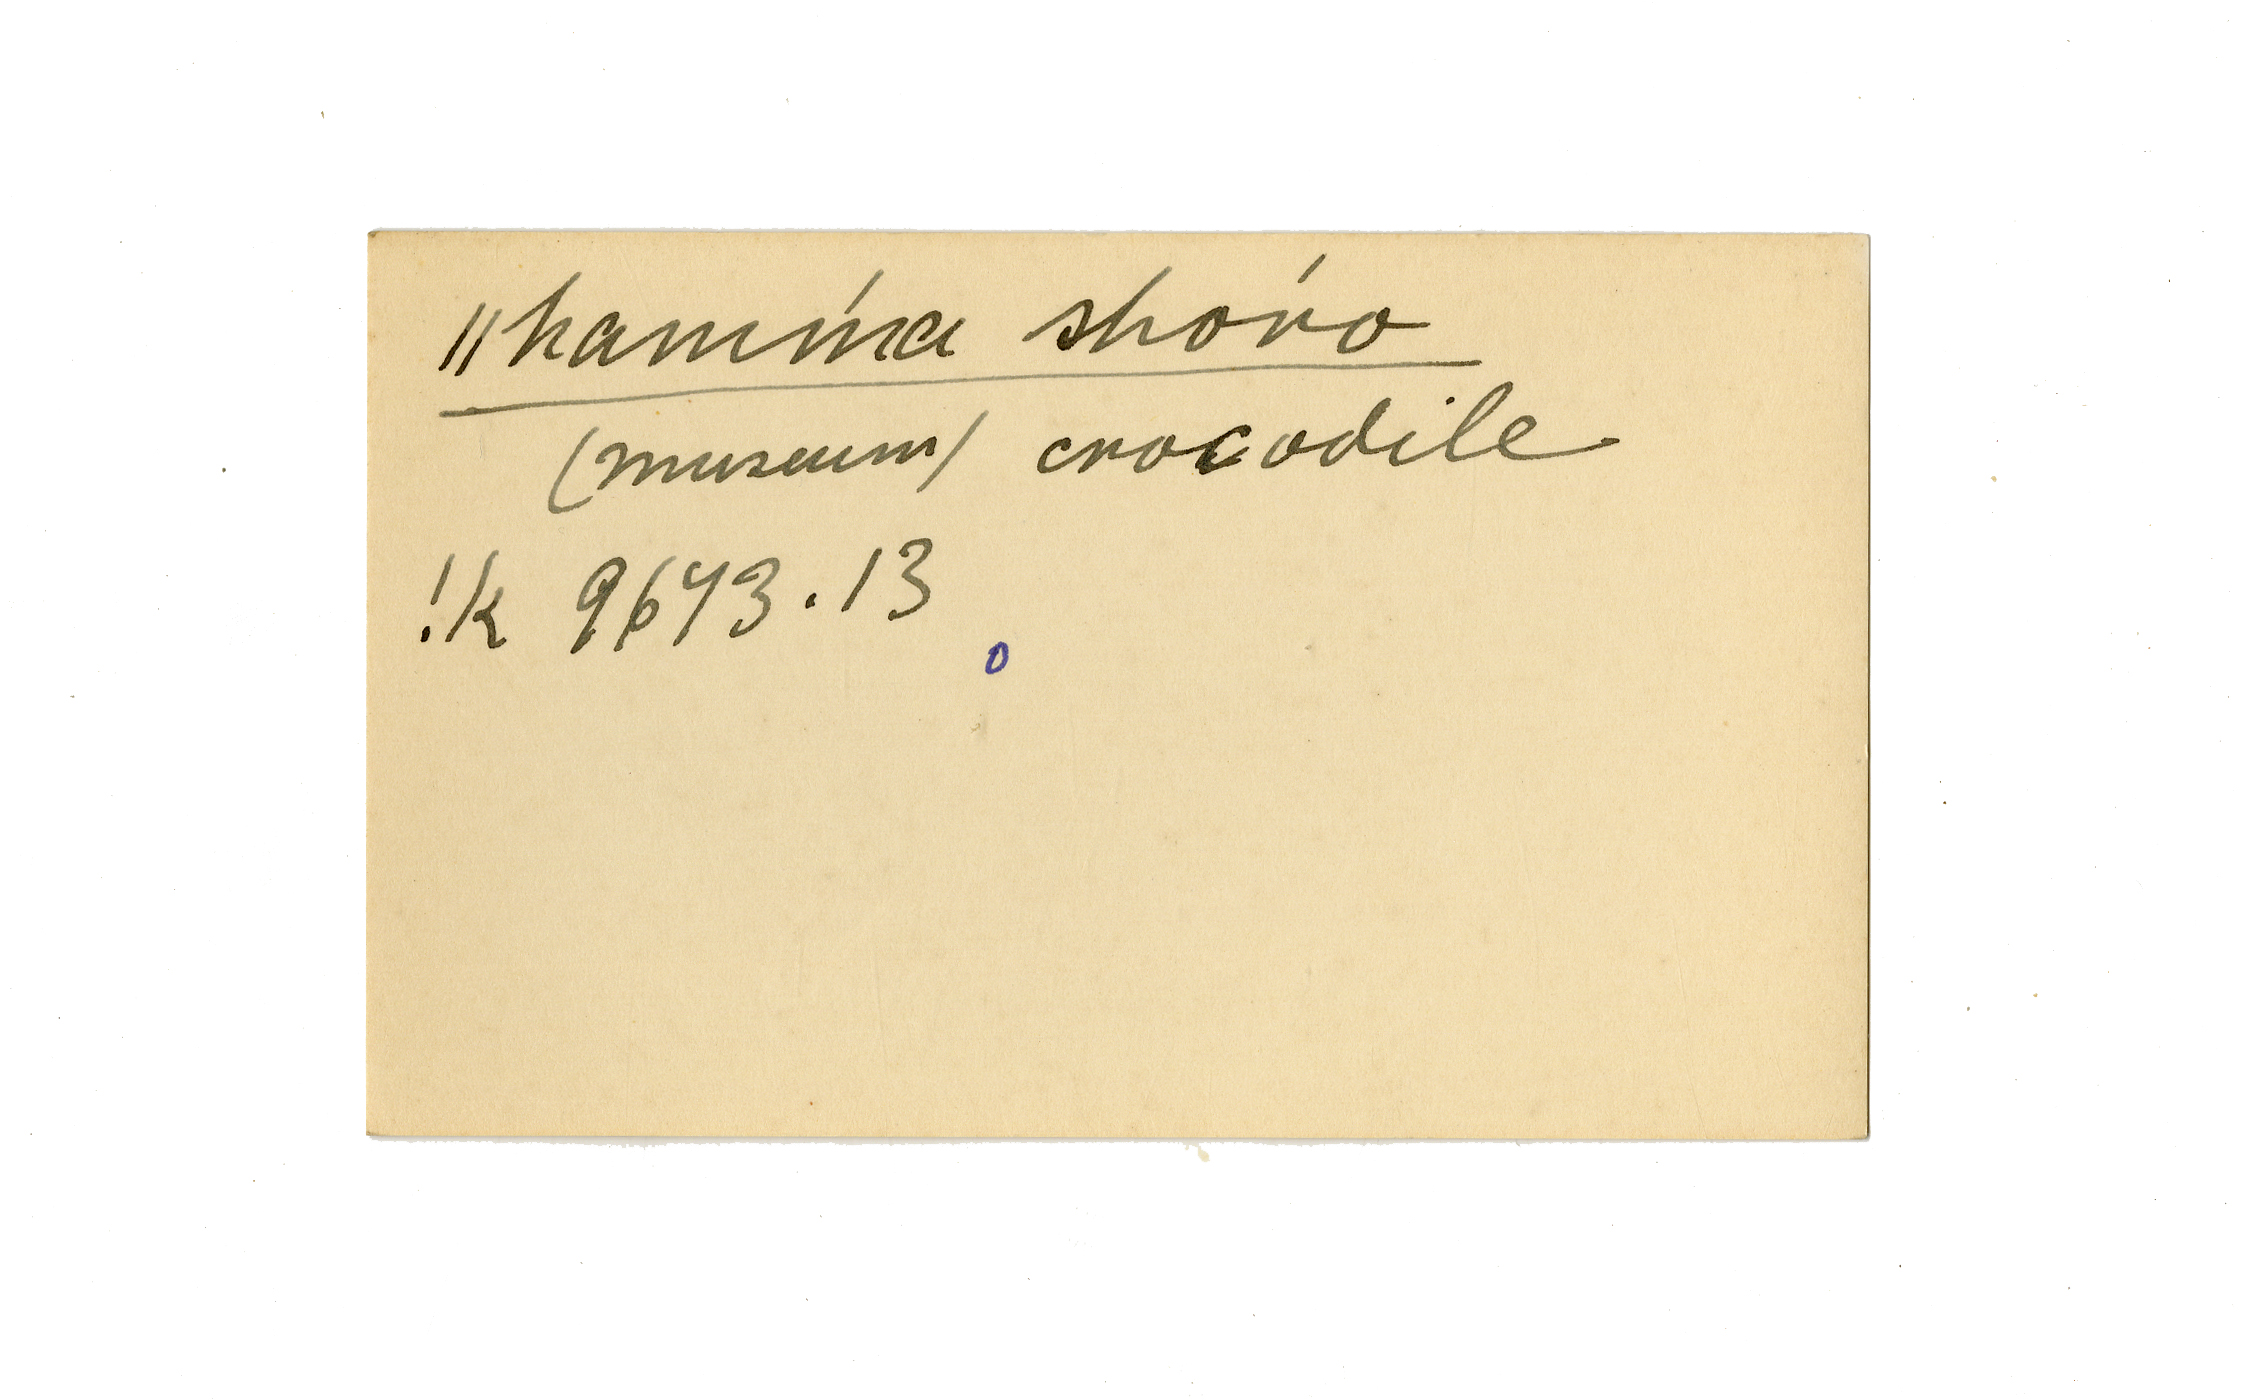 ǁkaníńa shóro
(museum) crocodile
!k 9643.13
o